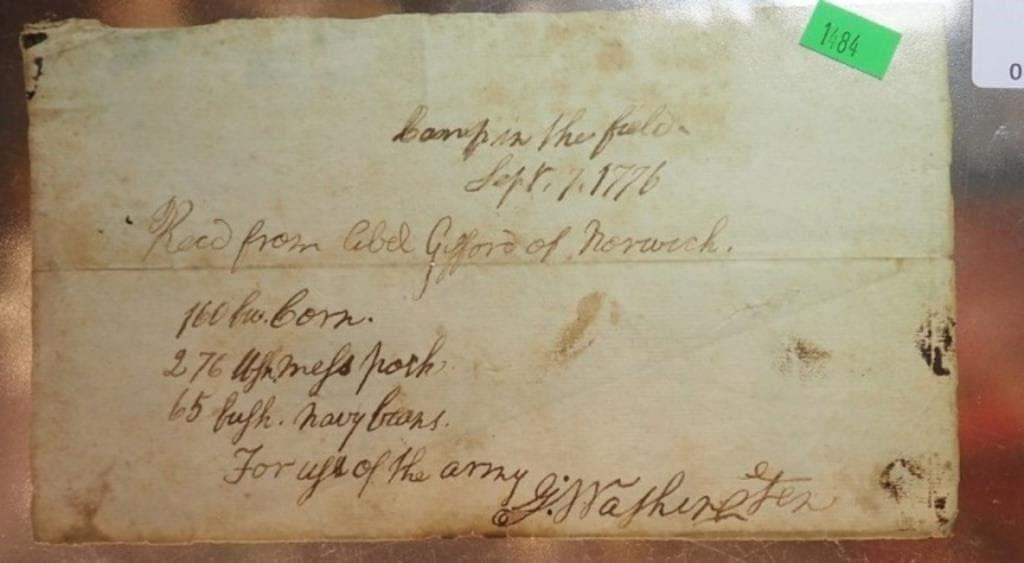 1484
0
Camp in the field.
Sept. 7. 1776
Recd from Abel Gifford of Norwich.
160 bu. Corn.
276 mess pork
65 bush. navy beans.
For use of the army
G. Washington